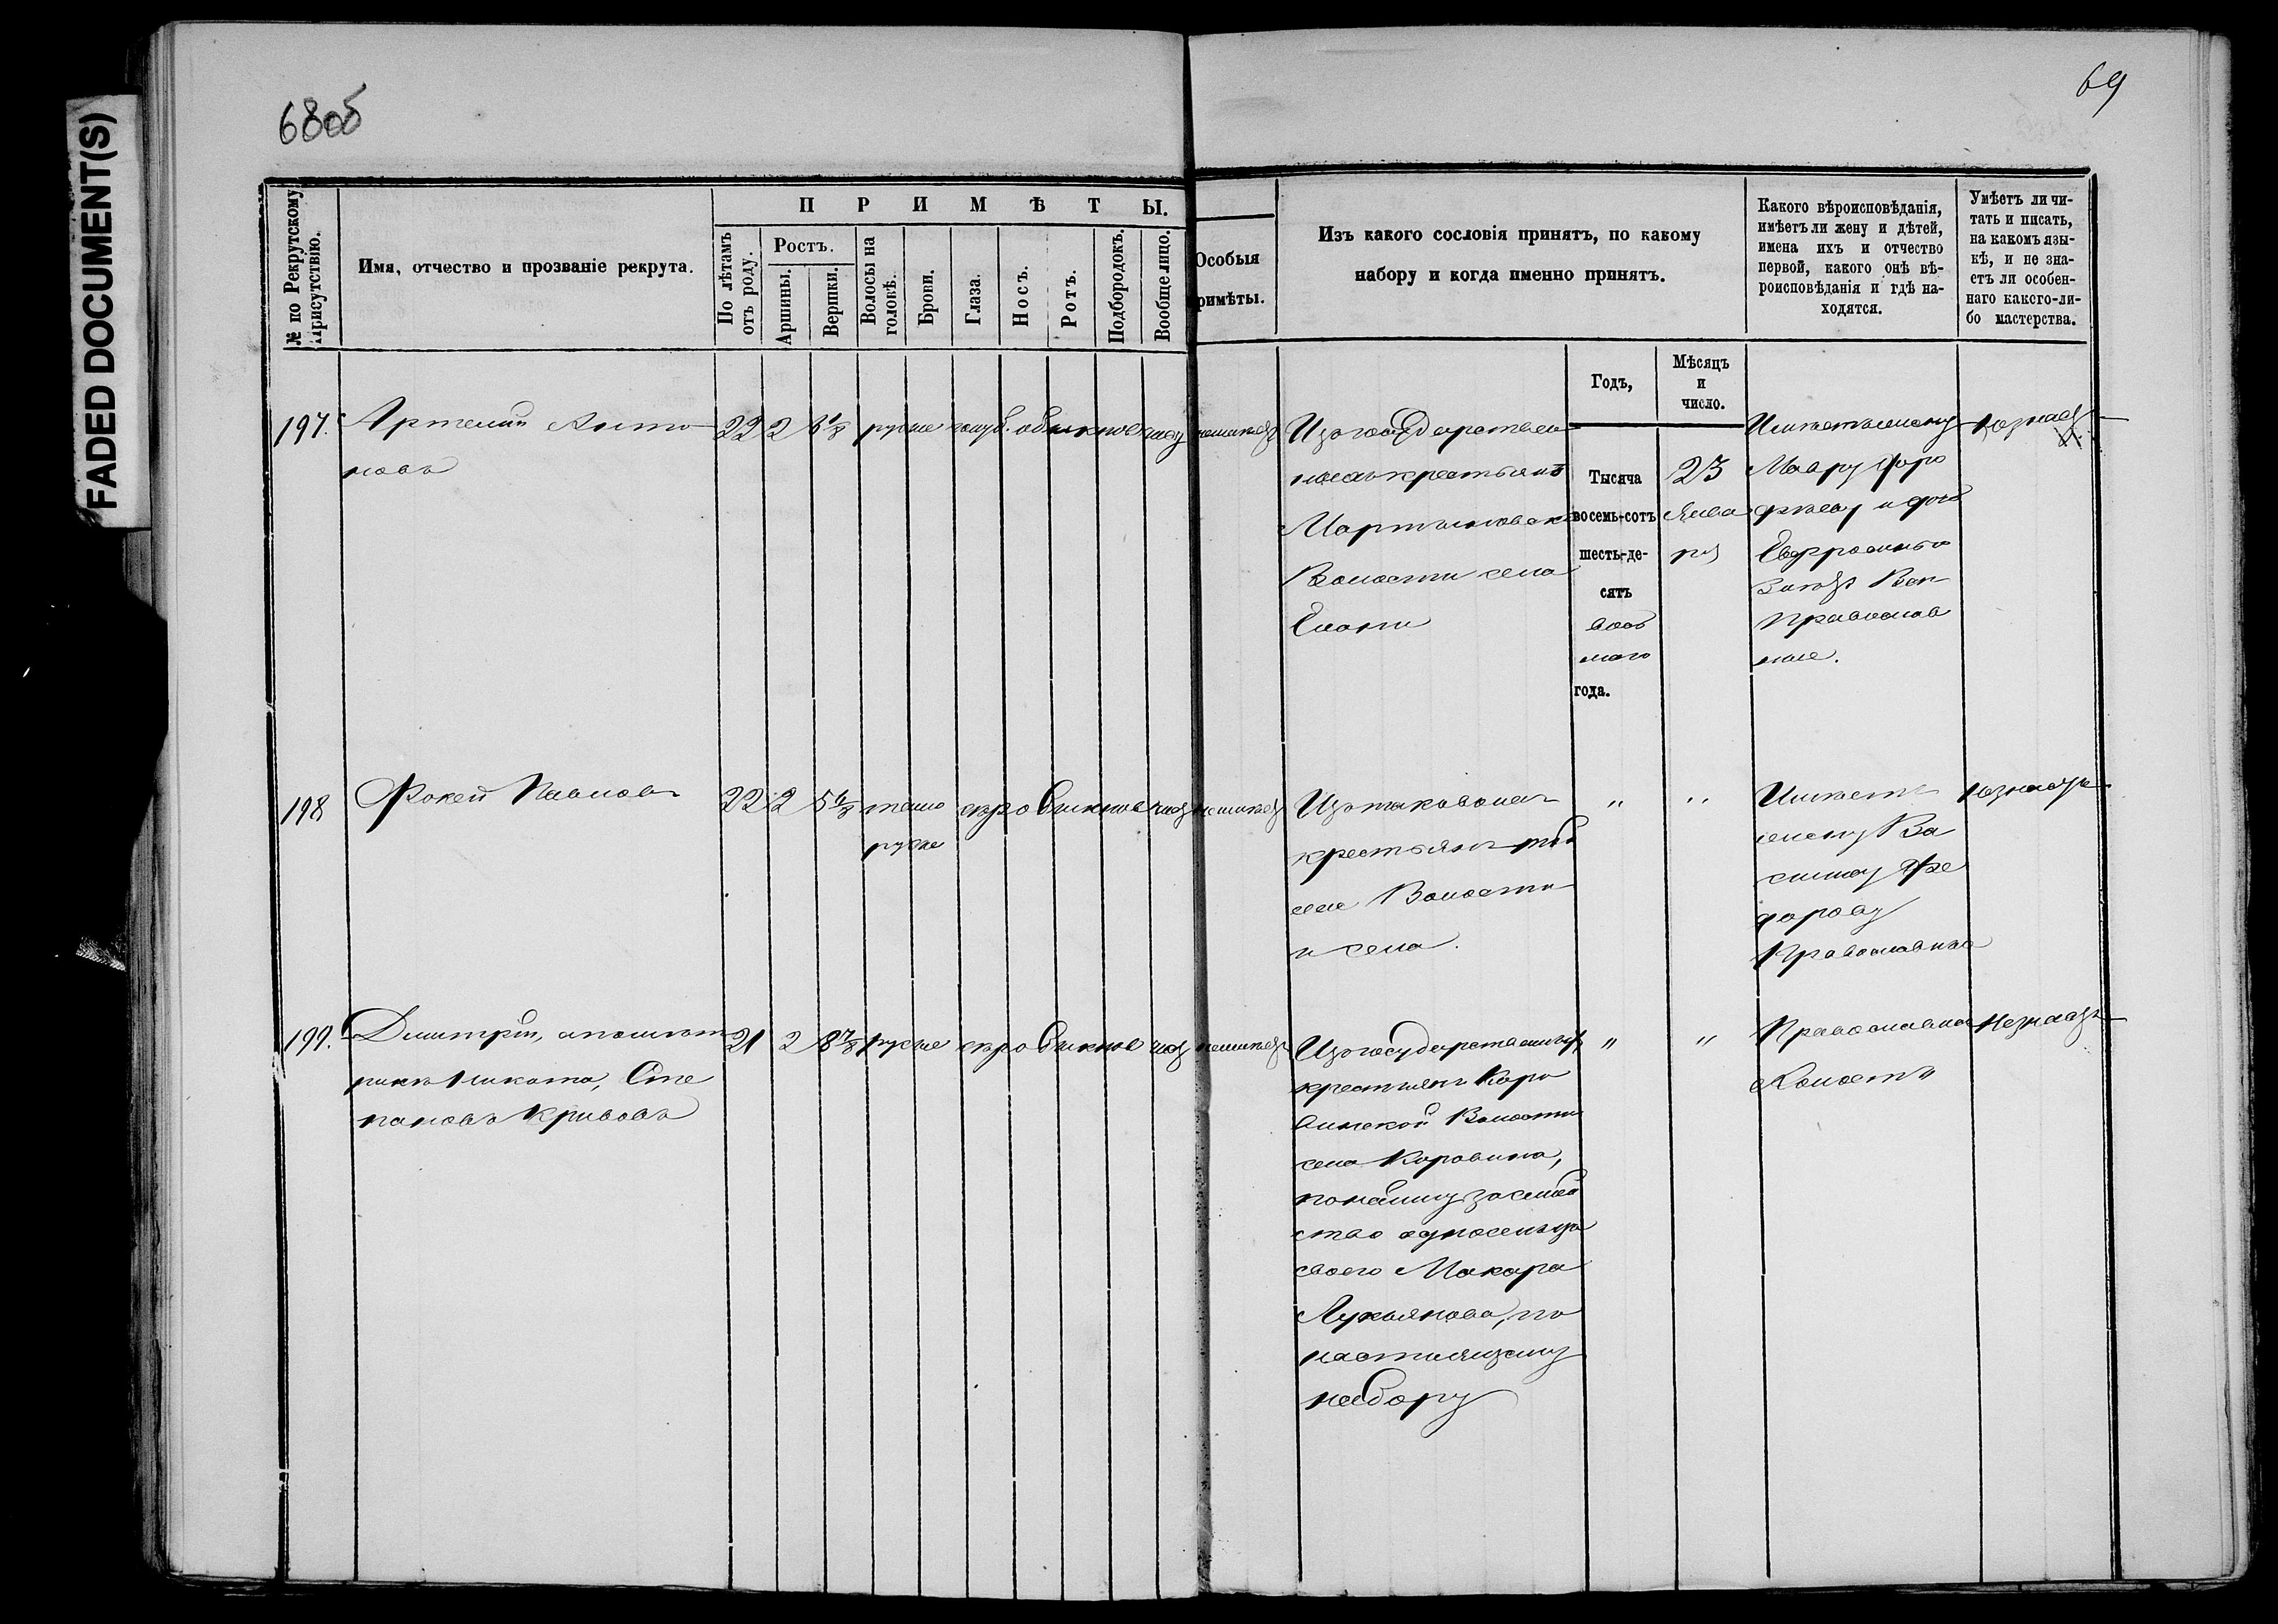 FADED DOCUMENT(S)
68об
69
№ по Рекрутскому
присутствію.
Имя, отчество и прозваніе рекрута.
ПРИМѢТЫ.
По лѣтамъ
отъ роду.
Ростъ.
Аршины.
Вершки.
Волосы на
головѣ.
Брови.
Глаза.
Носъ.
Ротъ.
Подбородокъ.
Вообще лицо.
Особыя
римѣты.
Изъ какого сословія принятъ, по какому
набору и когда именно принятъ.
Какого вѣроисповѣданія,
имѣетъ ли жену и дѣтей,
имена ихъ и отчество
первой, какого онѣ вѣ-
роисповѣданія и гдѣ на-
ходятся.
Умѣетъ ли чи-
тать и писать,
на какомъ язы-
кѣ, и не зна-
етъ ли особен-
наго какого-ли-
бо мастерства.
Годъ,
Мѣсяцъ
и
число.
197.
Артемій Анто
новъ
22 2 русые голуб. обыкнов
Изъ государствен
крестьянъ
Мартыновск
Волости села
Елани
Тысяча
восемь-сотъ
шесть-де-
сятъ
вось
маго
года.
23
Янва
ря
Имѣетъ жену
Мавру
и дочь
Евфросинью
Православ
ные.
198
Фокей Павлов
22 2 5 1/8 темно
русые
сѣро
Изъ таковыхъ
крестьянъ той
же Волости
и села.
" "
Имѣетъ
жену Ва
силису Фе
дорову
Православные
199.
Димитрій, а по метри
рикѣ Никита, Сте
пановъ Кривовъ
21 2 8 7/8 русые сѣро
Изъ государственныхъ
крестьянъ Коро
винской Волости
села Коровина,
по найму за семей
ство односельца
своего Макара
Лукьянова, по
настоящему
набору
" "
Православна
Холостъ
незнаетъ